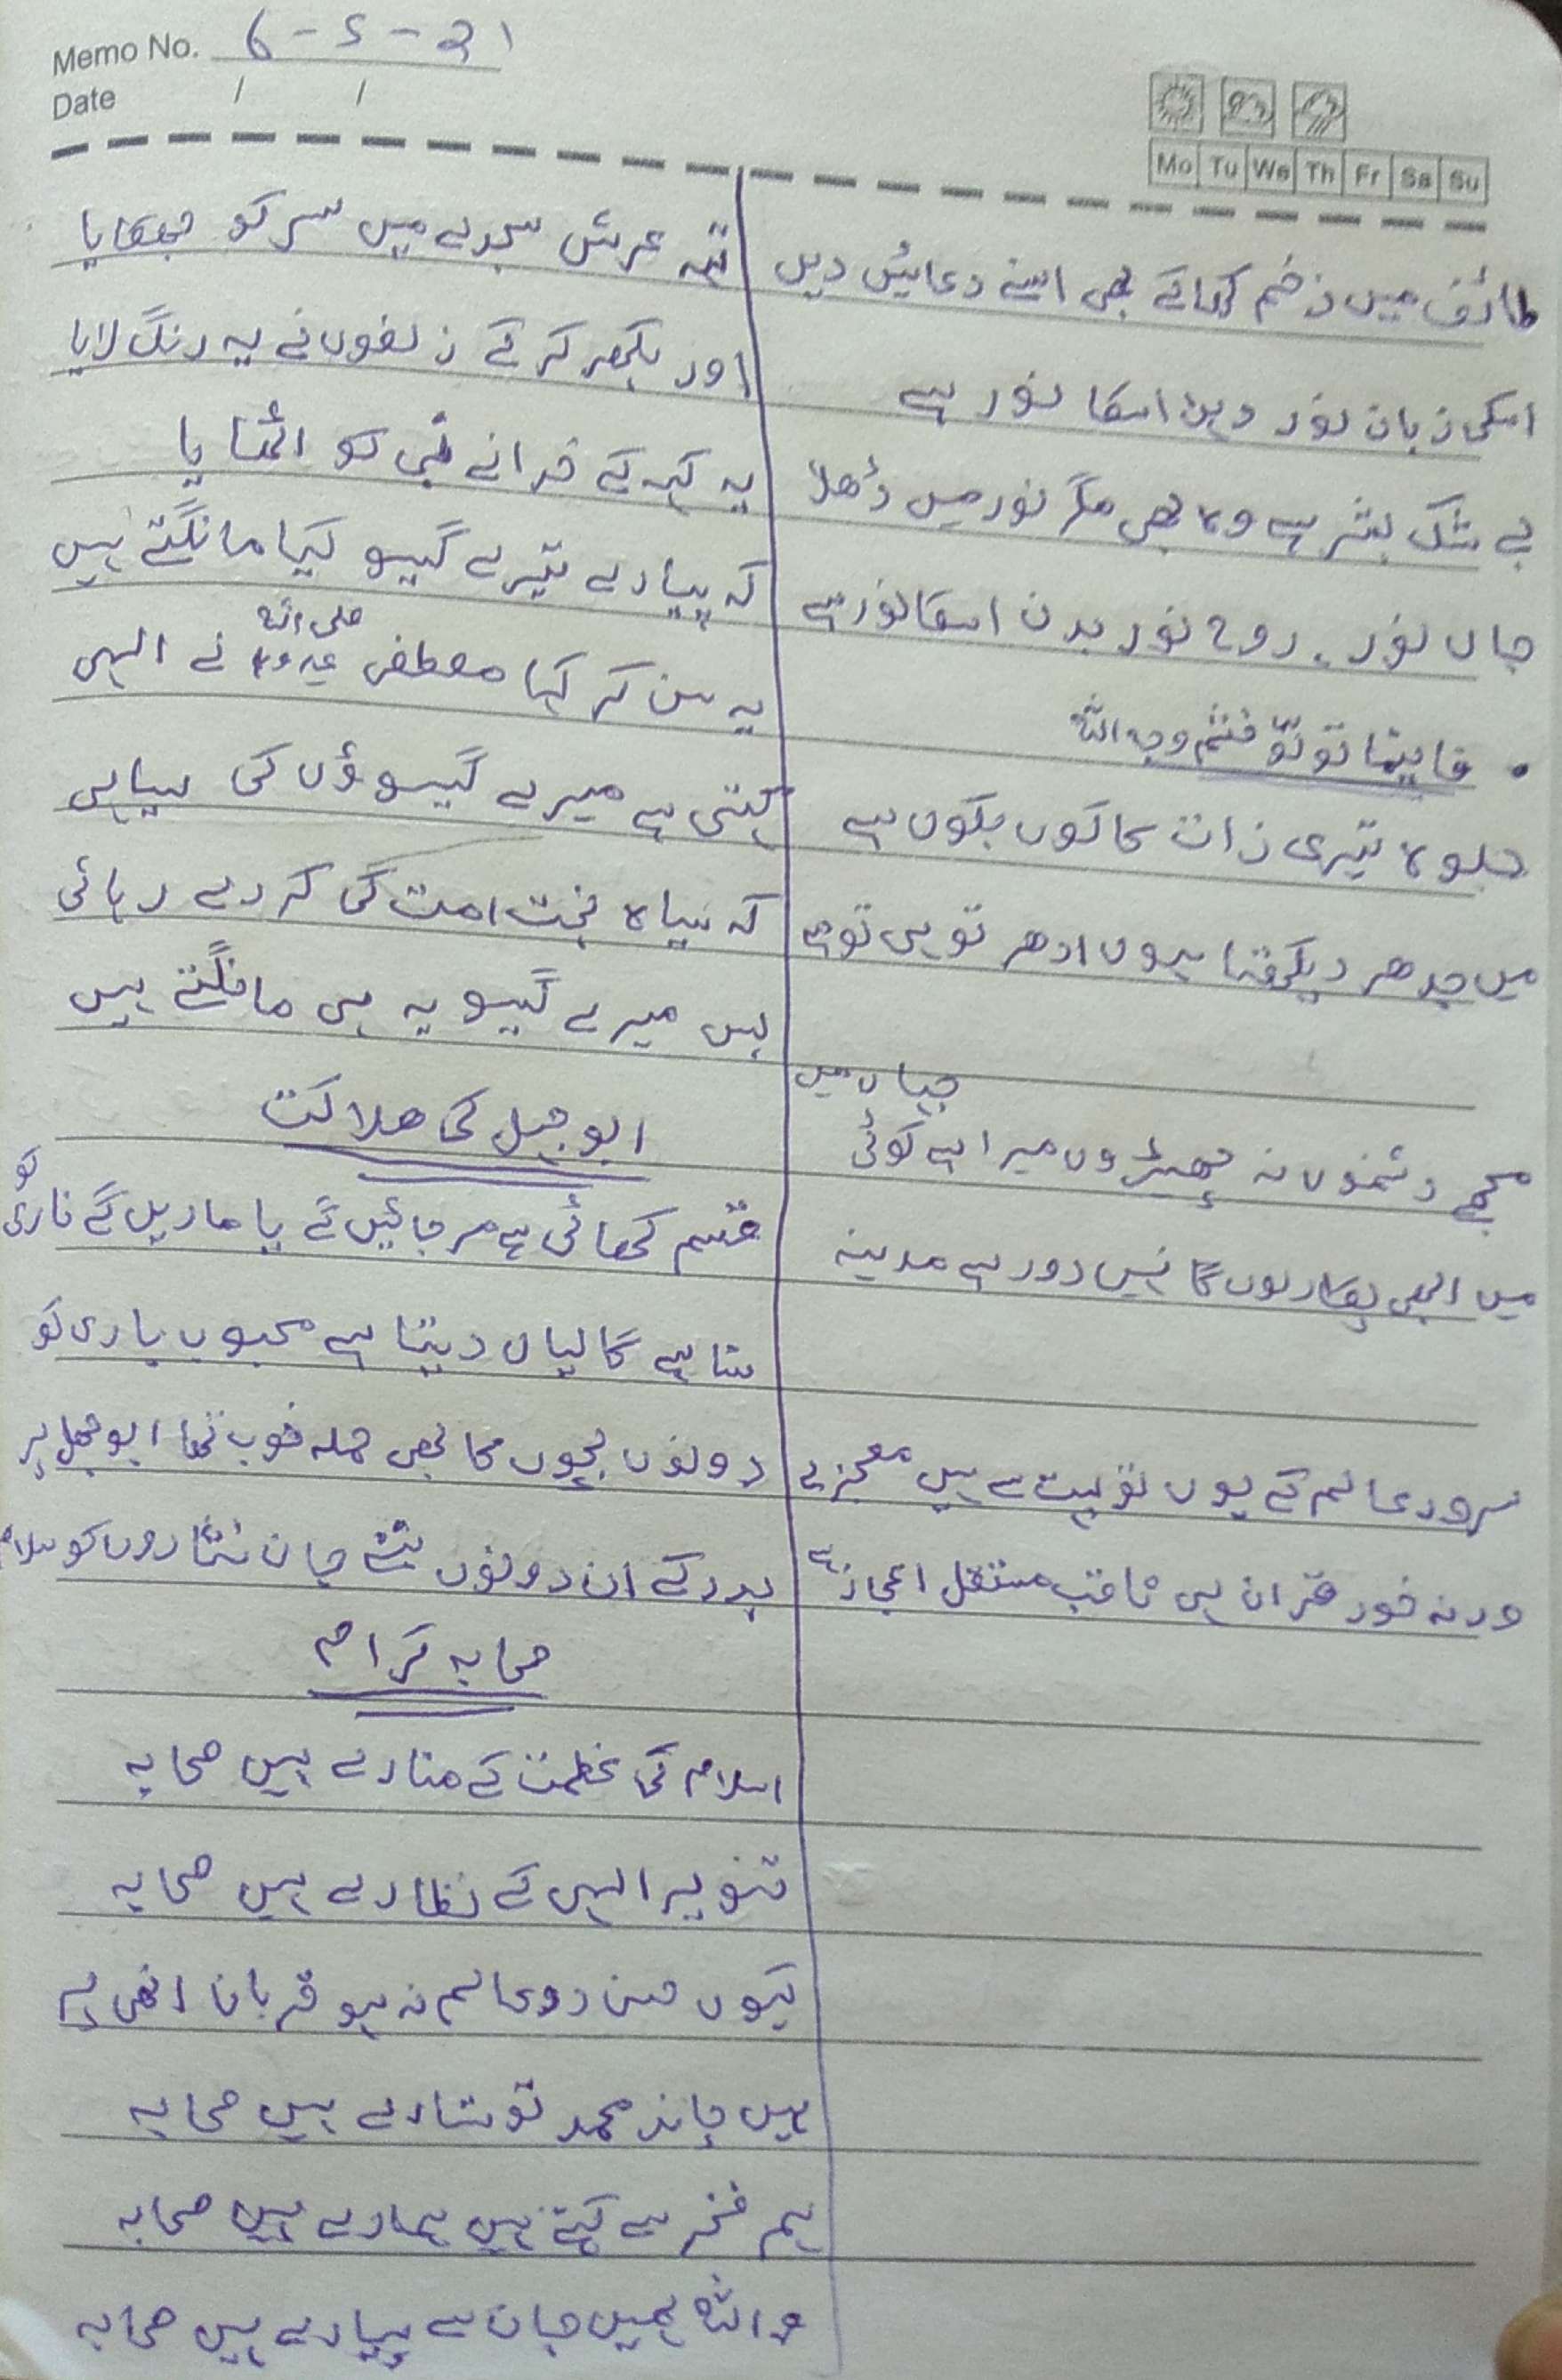 Memo No. 6-5-21
Date / /
Mo Tu We Th Fr Sa Su
طائف میں زخم کھاکے بھی اسنے دعائیں دیں
اسکی زبان نور دہن اسکا نور ہے
بے شک بشر ہے وہ بھی مگر نور میں ڈھلا
جاں نور ۔ روح نور بدن اسکا نور ہے
• فاینما تولّوّ فثم وجہ اللہ
جلوہ تیری ذات کا کوں بکوں ہے
میں جدھر دیکھتا ہوں ادھر تو ہی تو ہے
جہاں میں
مجھے دشمنوں نہ چھیڑوں میرا ہے کوئی
میں ابھی پکارلوں گا نہیں دور ہے مدینہ
سرور عالم کے یوں تو بہت سے ہیں معجزے
ورنہ خود قران ہی صاحب مستقل اعجاز ہے
تہہ عرش سجدے میں سر کو جھکایا
اور بکھر کر کے زلفوں نے یہ رنگ لایا
یہ کہہ کے خدا نے نبی کو اٹھایا
کہ پیارے تیرے گیسو کیا مانگتے ہیں
یہ سن کر کہا مصطفی صلی اللہ علیہ وسلم نے الہی
کہتی ہے میرے گیسوؤں کی سیاہی
کہ سیاہ بخت امت کی کر دے رہائی
بس میرے گیسو یہ ہی مانگتے ہیں
ابو جہل کی ھلاکت
قسم کھائی ہے مر جائیں گے یا ماریں گے ناری کو
سنا ہے گالیاں دیتا ہے محبوب باری کو
دونوں بچوں کا بھی حملہ خوب تھا ابو جھل پر
بدر کے ان دونوں ننھے جان نثاروں کو سلام
صحابہ کرام
اسلام کی عظمت کے منارے ہیں صحابہ
تنویر الہی کے نظارے ہیں صحابہ
کیوں حسن دو عالم نہ ہو قربان انھی پے
ہیں چاند محمد تو ستارے ہیں صحابہ
ہم فخر سے کہتے ہیں ہمارے ہیں صحابہ
واللہ ہمیں جان سے پیارے ہیں صحابہ